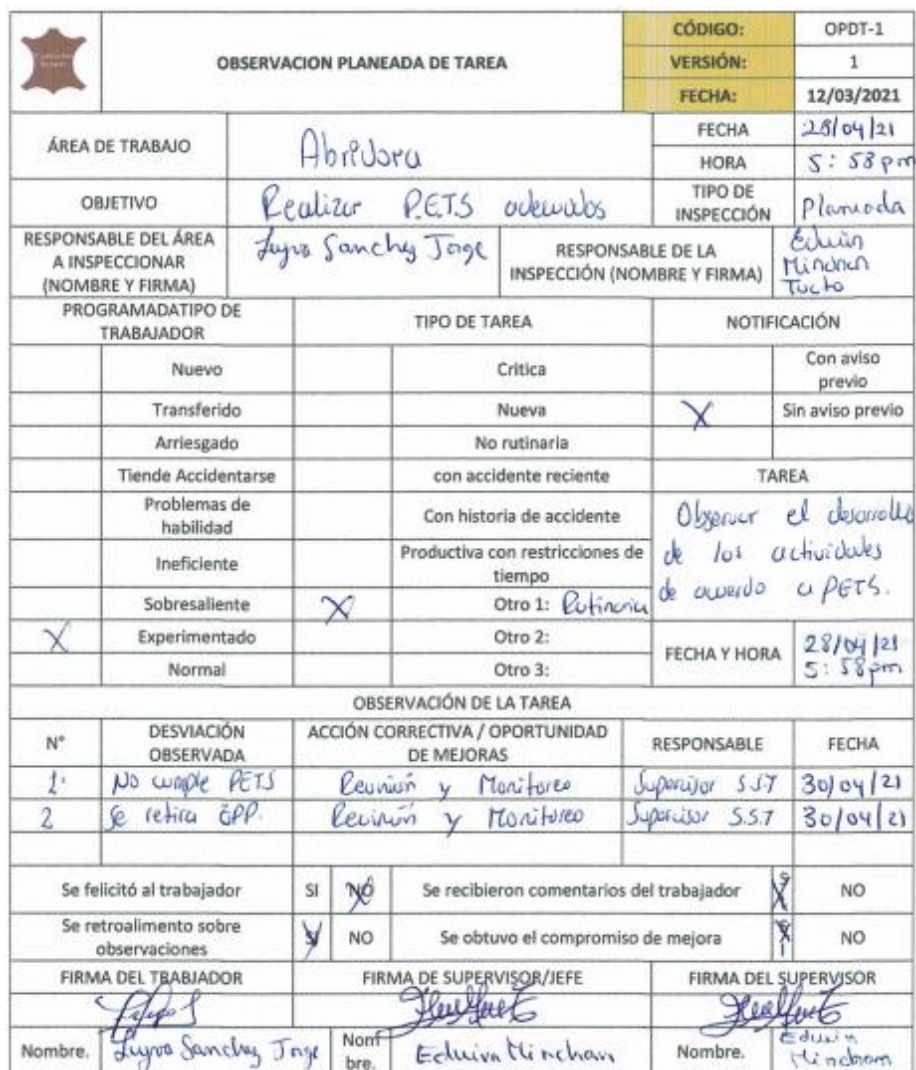 OBSERVACION PLANEADA DE TAREA
CÓDIGO: OPDT-1
VERSIÓN: 1
FECHA: 12/03/2021
ÁREA DE TRABAJO Abridora
FECHA 28/04/21
HORA 5:58 pm
OBJETIVO Realizar P.E.T.S adecuados
TIPO DE INSPECCIÓN Planeada
RESPONSABLE DEL ÁREA A INSPECCIONAR (NOMBRE Y FIRMA) Sanchez Jorge
RESPONSABLE DE LA INSPECCIÓN (NOMBRE Y FIRMA) Edwin Minchan Tucto
PROGRAMADATIPO DE TRABAJADOR
TIPO DE TAREA
NOTIFICACIÓN
Nuevo
Critica
Con aviso previo
Transferido
Nueva
X Sin aviso previo
Arriesgado
No rutinaria
Tiende Accidentarse
con accidente reciente
TAREA
Problemas de habilidad
Con historia de accidente
Observar el desarrollo
de las actividades
de acuerdo a PETS.
Ineficiente
Productiva con restricciones de tiempo
Sobresaliente
X Otro 1: Rutinaria
X Experimentado
Otro 2:
FECHA Y HORA 28/04/21 5:58pm
Normal
Otro 3:
OBSERVACIÓN DE LA TAREA
N° DESVIACIÓN OBSERVADA ACCIÓN CORRECTIVA / OPORTUNIDAD DE MEJORAS RESPONSABLE FECHA
1. No cumple PETS Reunión y Monitoreo Supervisor S.S.T 30/04/21
2 Se retira EPP. Reunión y Monitoreo Supervisor S.S.T 30/04/21
Se felicitó al trabajador SI NO
Se recibieron comentarios del trabajador SI NO
Se retroalimento sobre observaciones SI NO
Se obtuvo el compromiso de mejora SI NO
FIRMA DEL TRABJADOR FIRMA DE SUPERVISOR/JEFE FIRMA DEL SUPERVISOR
Nombre. Sanchez Jorge
Nombre. Edwin Minchan
Nombre. Edwin Minchan